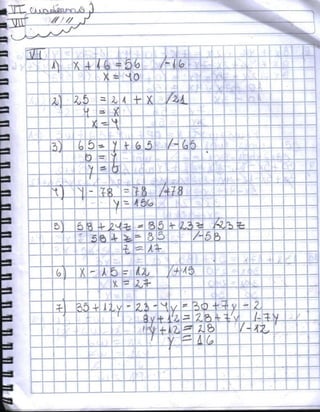 VI
VII
VII
1) x + 16 = 56 /-16
x = 40
2) 25 = 21 + x /21
4 = x
x = 4
3) 65 = y + 65 /-65
0 = y
y = 0
4) y - 78 = 78 /+78
y = 156
5) 58 + 24z = 85 + 23z /-23z
58 + z = 85 /-58
z = 17
6) x - 15 = 12 /+15
x = 27
7) 35 + 12y - 23 - 4y = 30 + 7y - 2
8y + 12 = 28 + 7y /-7y
y + 12 = 28 /-12
y = 16